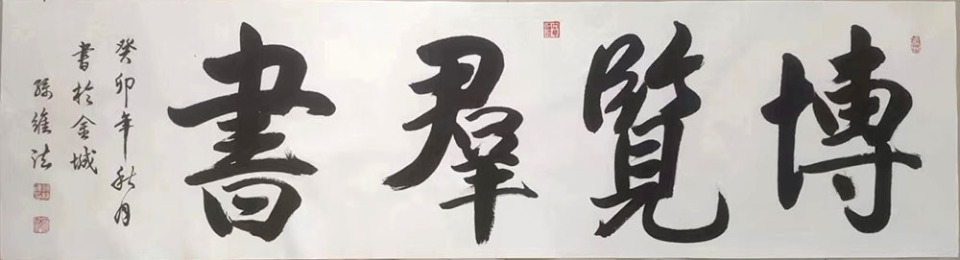 博覽羣書
癸卯年秋月
書於金城
孫維法